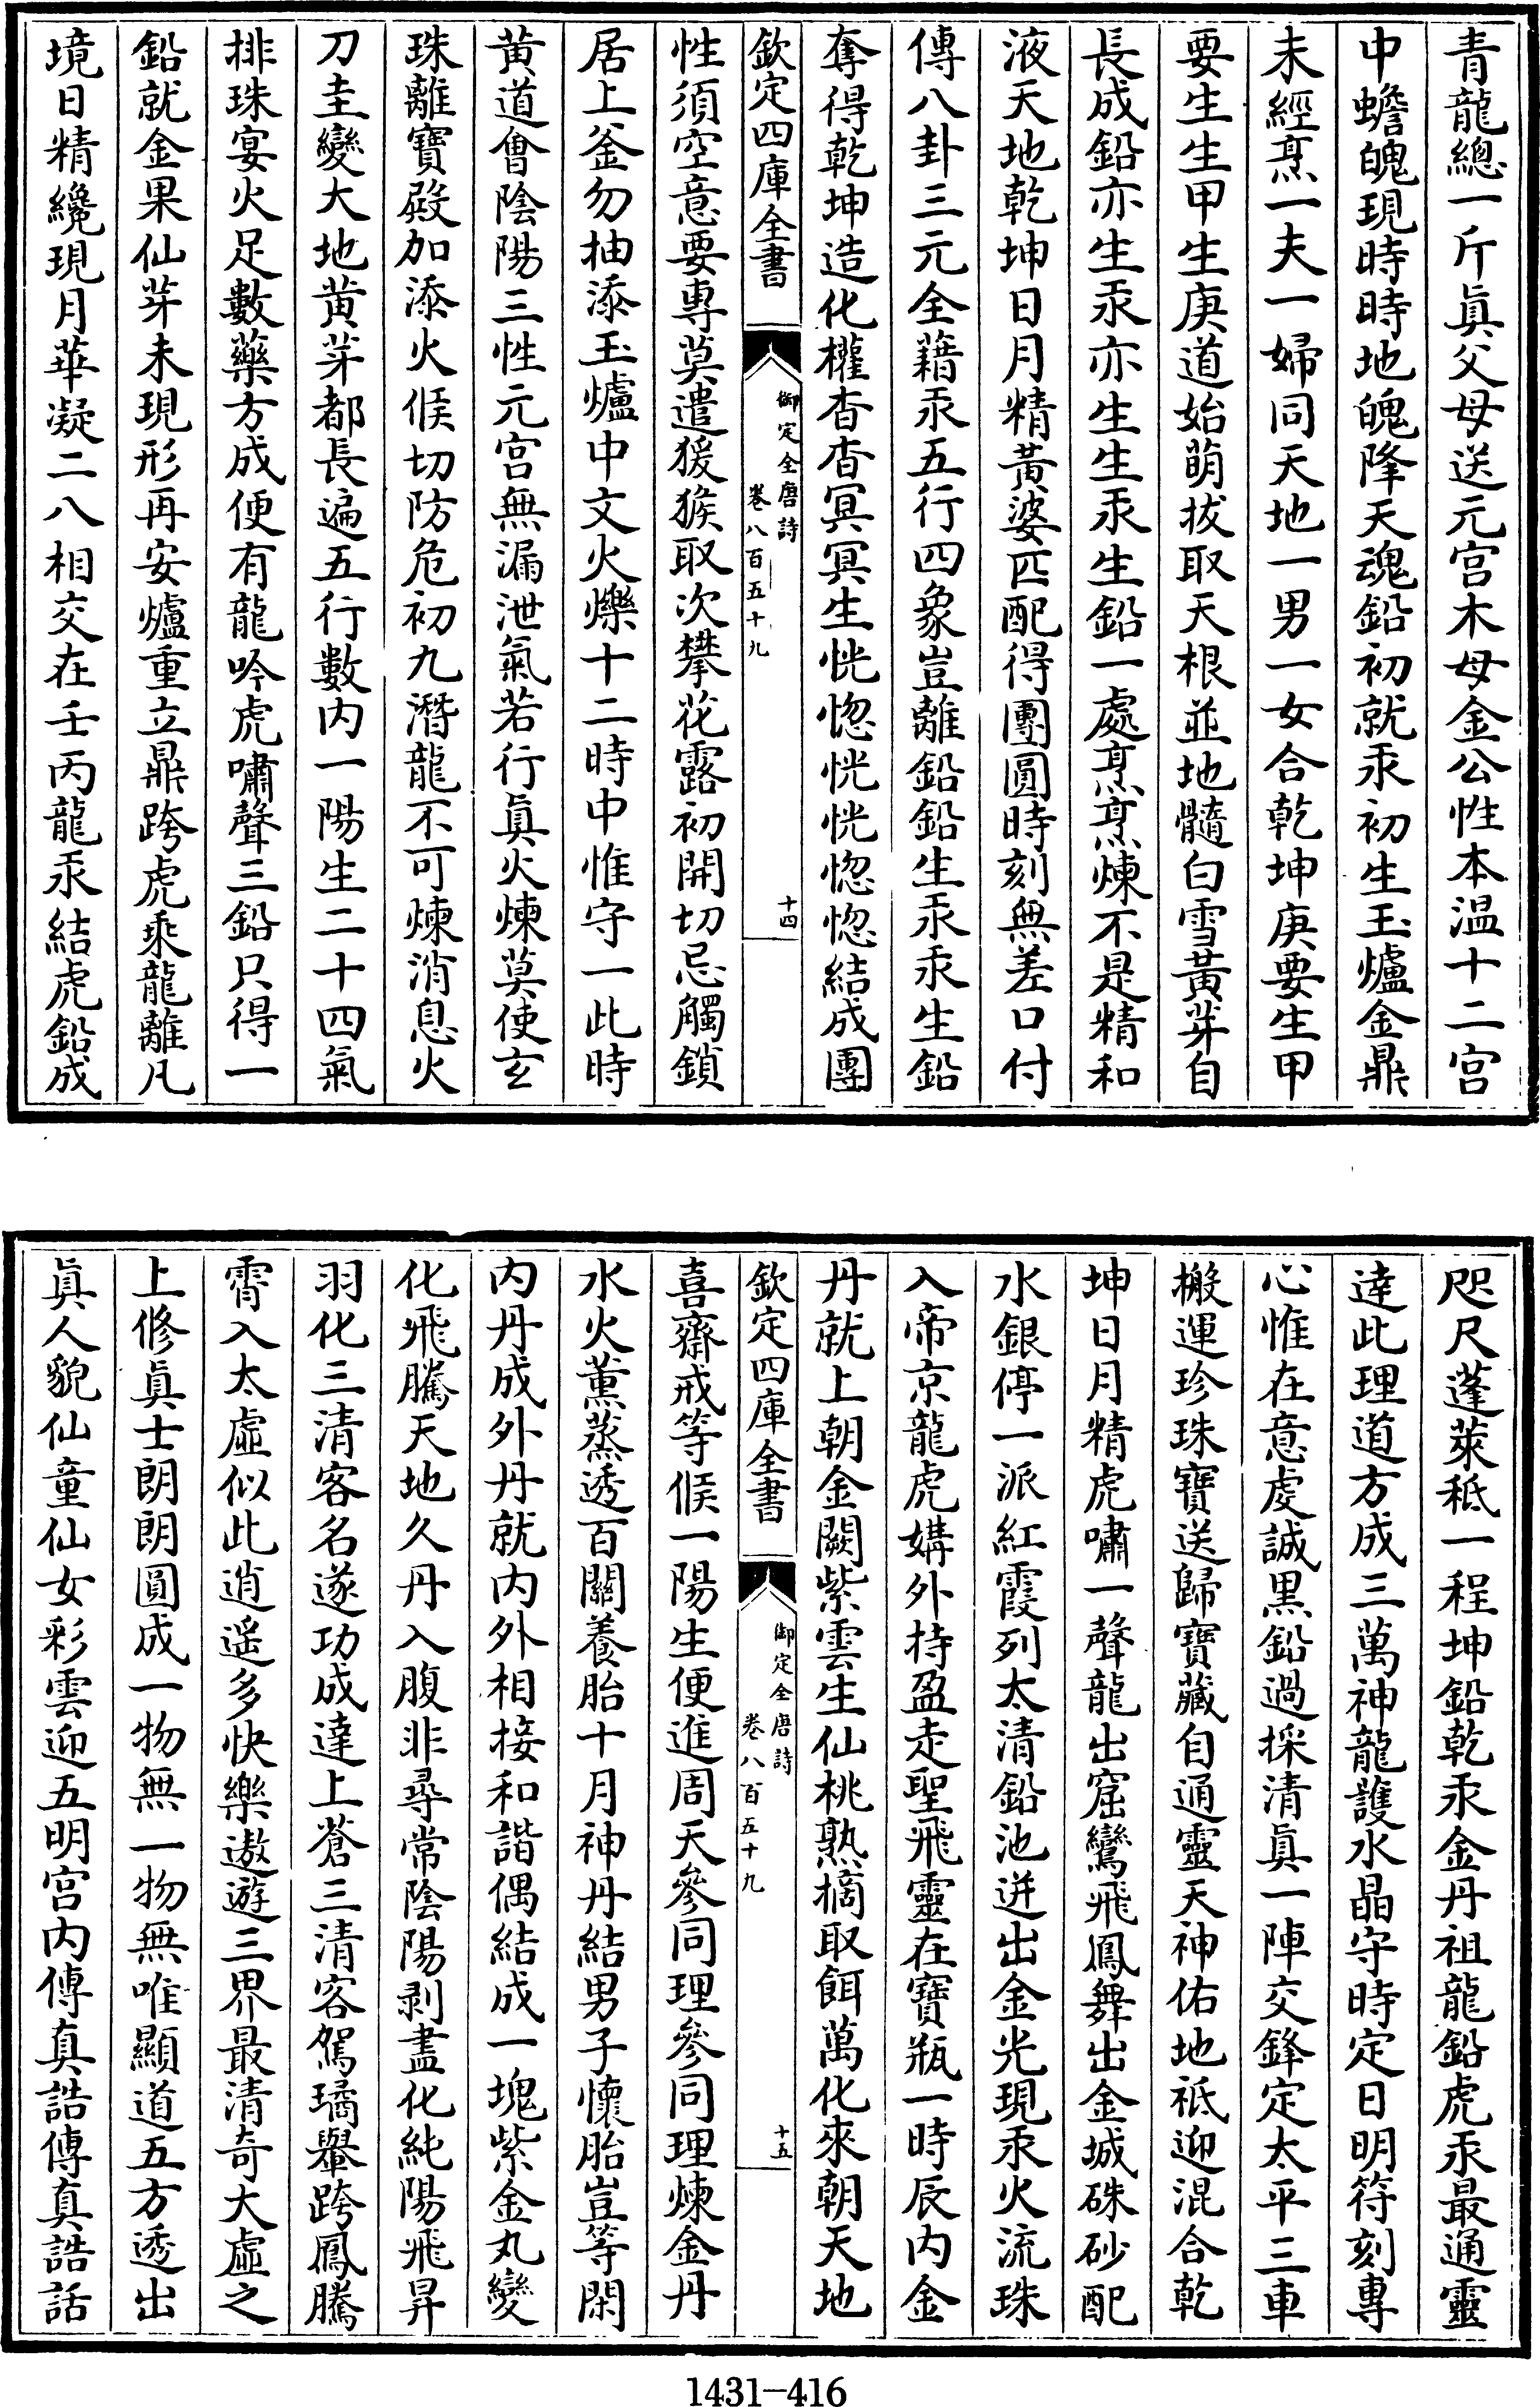 青龍總一斤真父母送元宮木母金公性本温十二宮
中蟾魄現時時地魄降天魂鉛初就汞初生玉爐金鼎
未經烹一夫一婦同天地一男一女合乾坤庚要生甲
要生生甲生庚道始萌拔取天根並地髓白雪黃芽自
長成鉛亦生汞亦生生汞生鉛一處烹烹煉不是精和
液天地乾坤日月精黃婆匹配得團圓時刻無差口付
傳八卦三元全藉汞五行四象豈離鉛鉛生汞汞生鉛
奪得乾坤造化權杳杳冥冥生恍惚恍恍惚惚結成團
欽定四庫全書
御定全唐詩
卷八百五十九
十四
性須空意要專莫遣猨猴取次攀花露初開切忌觸鎖
居上釜勿抽添玉爐中文火爍十二時中惟守一此時
黃道會陰陽三性元宮無漏泄氣若行真火煉莫使玄
珠離寶殿加添火候切防危初九潛龍不可煉消息火
刀圭變大地黃芽都長遍五行數内一陽生二十四氣
排珠宴火足數藥方成便有龍吟虎嘯聲三鉛只得一
鉛就金果仙芽未現形再安爐重立鼎跨虎乘龍離凡
境日精纔現月華凝二八相交在壬丙龍汞結虎鉛成
咫尺蓬萊秪一程坤鉛乾汞金丹祖龍鉛虎汞最通靈
達此理道方成三萬神龍護水晶守時定日明符刻專
心惟在意虔誠黑鉛過採清真一陣交鋒定太平三車
搬運珍珠寶送歸寶藏自通靈天神佑地祗迎混合乾
坤日月精虎嘯一聲龍出窟鸞飛鳳舞出金城硃砂配
水銀停一派紅霞列太清鉛池迸出金光現汞火流珠
入帝京龍虎媾外持盈走聖飛靈在寶瓶一時辰内金
丹就上朝金闕紫雲生仙桃熟摘取餌萬化來朝天地
欽定四庫全書
御定全唐詩
卷八百五十九
十五
喜齋戒等候一陽生便進周天參同理參同理煉金丹
水火薰蒸透百關養胎十月神丹結男子懷胎豈等閑
内丹成外丹就内外相接和諧偶結成一塊紫金丸變
化飛騰天地久丹入腹非尋常陰陽剥盡化純陽飛昇
羽化三清客名遂功成達上蒼三清客駕璚轝跨鳳騰
霄入太虛似此逍遥多快樂遨遊三界最清奇大虛之
上修真士朗朗圓成一物無一物無唯顯道五方透出
真人貌仙童仙女彩雲迎五明宮内傳真誥傳真誥話
1431-416